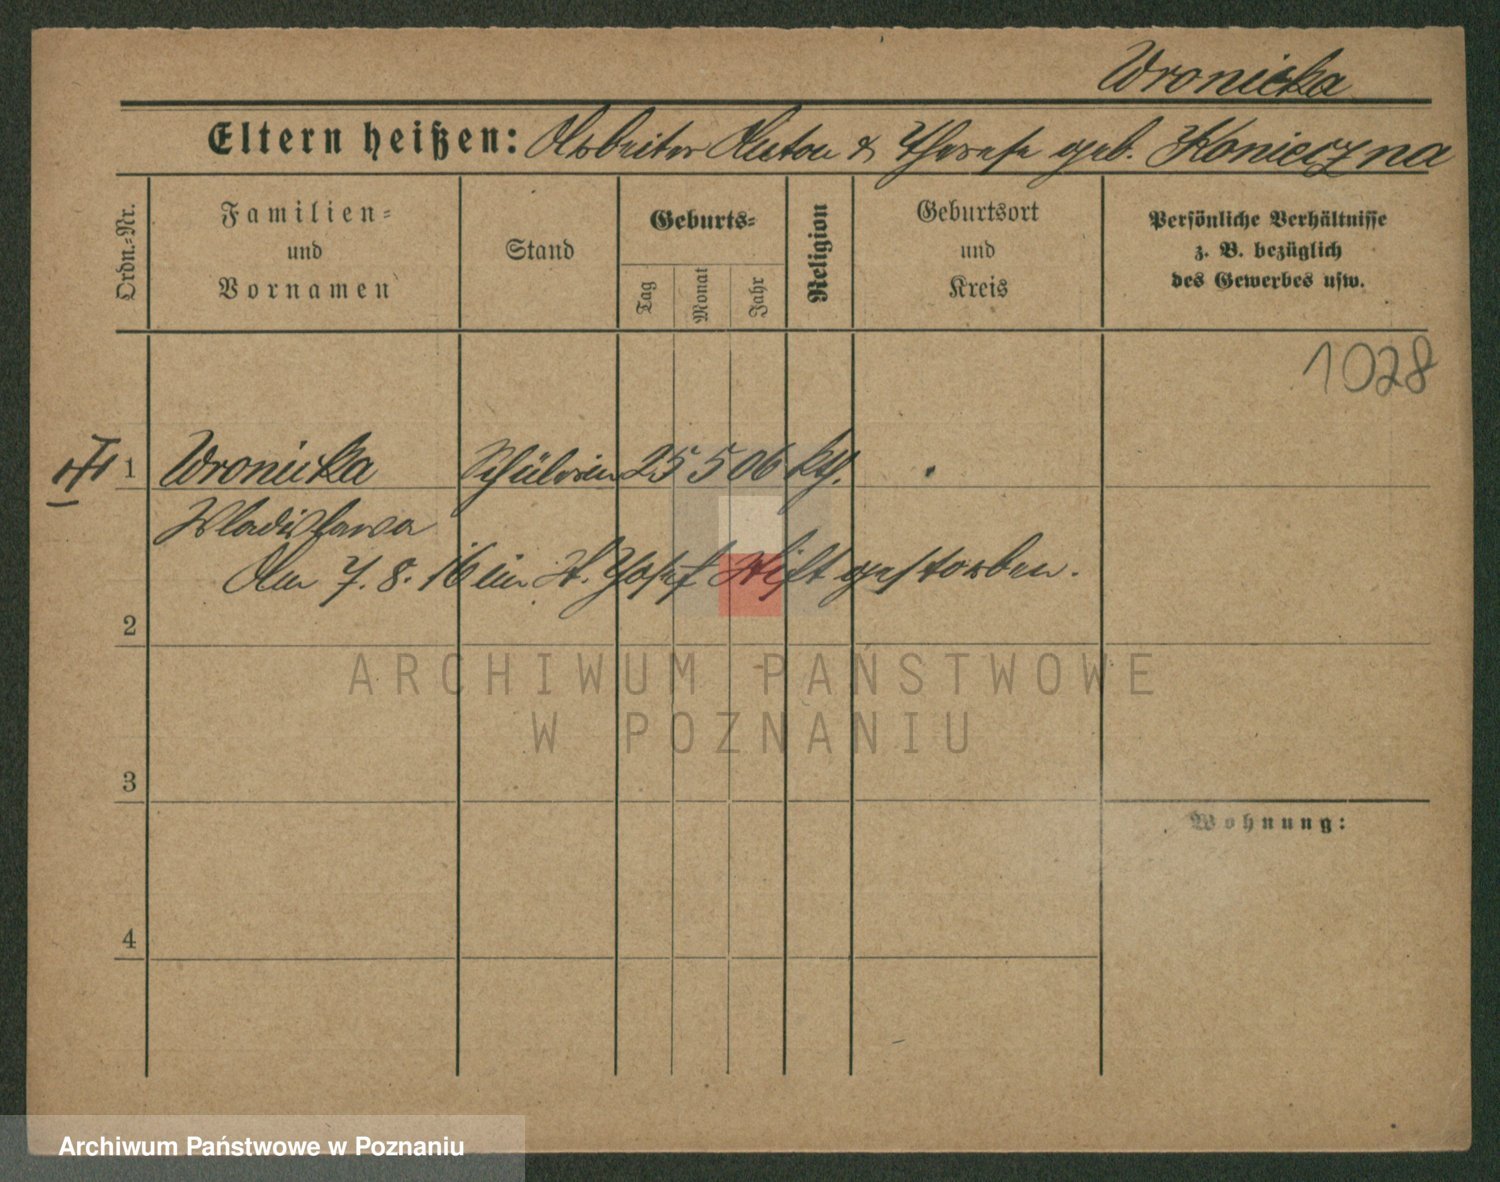 Wronicka
Eltern heißen: Arbeiter Anton & Therese geb. Konieczna
Ordn.-Nr.
Familien- und Vornamen
Stand
Geburts-
Tag
Monat
Jahr
Religion
Geburtsort und Kreis
Persönliche Verhältnisse
z. B. bezüglich
des Gewerbes usw.
1028
1 Wronicka Schülerin 25 5 06 kth.
Wladislawa
Am 7. 8. 16 im St. Josef Stift gestorben.
2
ARCHIWUM PAŃSTWOWE
W POZNANIU
3
Wohnung:
4
Archiwum Państwowe w Poznaniu